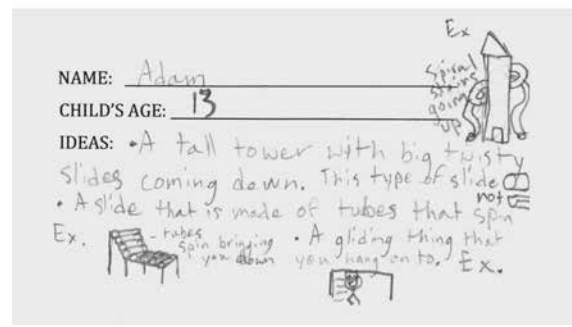 Ex
NAME: Adam
spiral
stairs
going
up
CHILD'S AGE: 13
IDEAS: •A tall tower with big twisty
slides coming down. This type of slide
not
• A slide that is made of tubes that spin
Ex. - tubes spin bringing you down
• A gliding thing that
you hang on to. Ex.